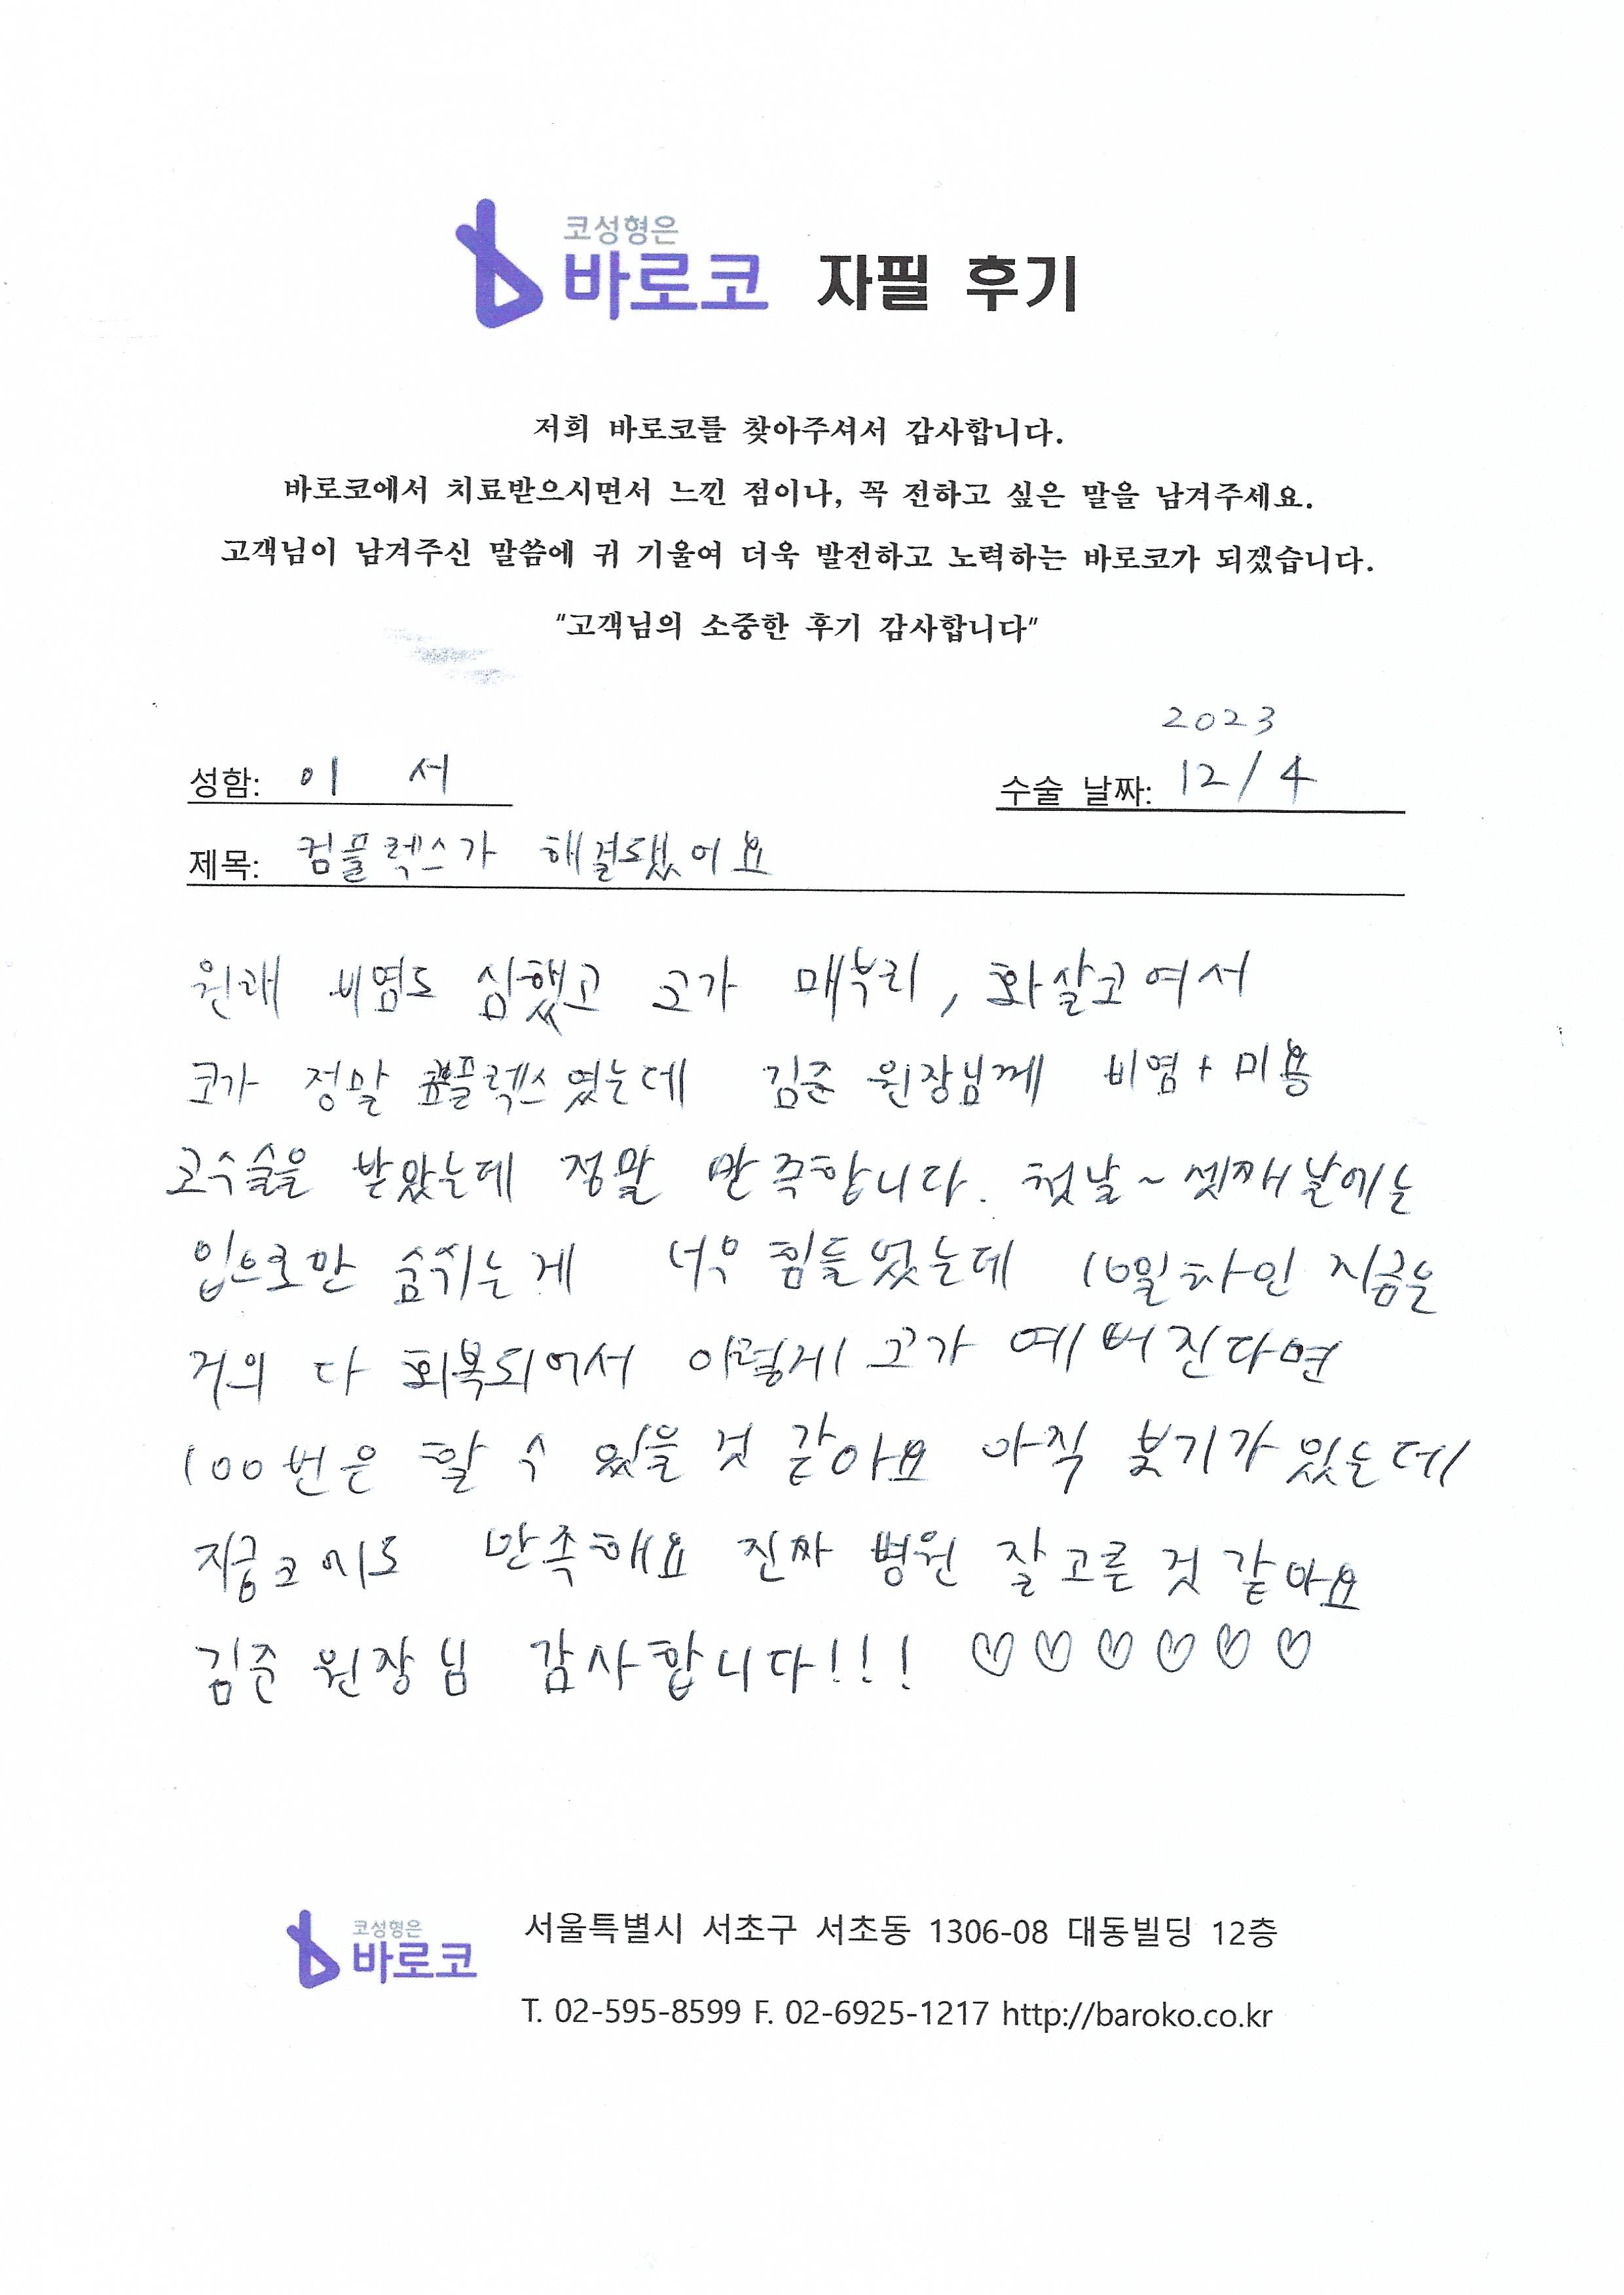 코성형은
바로코 자필 후기
저희 바로코를 찾아주셔서 감사합니다.
바로코에서 치료받으시면서 느낀 점이나, 꼭 전하고 싶은 말을 남겨주세요.
고객님이 남겨주신 말씀에 귀 기울여 더욱 발전하고 노력하는 바로코가 되겠습니다.
"고객님의 소중한 후기 감사합니다"
2023
성함: 이 서 수술 날짜: 12/4
제목: 컴플렉스가 해결됐어요
원래 비염도 심했고 코가 매부리, 화살코여서
코가 정말 컴플렉스였는데 김준 원장님께 비염+미용
코수술을 받았는데 정말 만족합니다. 첫날~셋째날에는
입으로만 숨쉬는게 너무 힘들었는데 10일차인 지금은
거의 다 회복되어서 이렇게 코가 예뻐진다면
100번은 할 수 있을 것 같아요 아직 붓기가 있는데
지금코에도 만족해요 진짜 병원 잘고른 것 같아요
김준 원장님 감사합니다!!! ♡♡♡♡♡♡
코성형은
바로코
서울특별시 서초구 서초동 1306-08 대동빌딩 12층
T. 02-595-8599 F. 02-6925-1217 http://baroko.co.kr